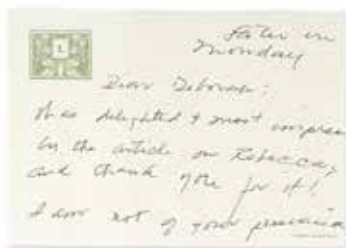 Later in
Monday
Dear Deborah:
was delighted & most
by the article on Rebecca,
and thank you for it!
I am not of your